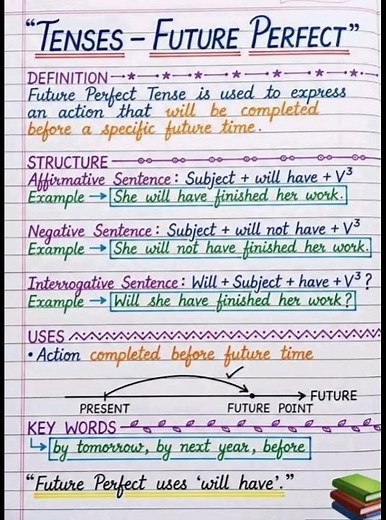 "TENSES – FUTURE PERFECT"
DEFINITION
Future Perfect Tense is used to express
an action that will be completed
before a specific future time.
STRUCTURE
Affirmative Sentence: Subject + will have + V³
Example → She will have finished her work.
Negative Sentence: Subject + will not have + V³
Example → She will not have finished her work.
Interrogative Sentence: Will + Subject + have + V³?
Example → Will she have finished her work?
USES
• Action completed before future time
PRESENT FUTURE POINT FUTURE
KEY WORDS
↳ by tomorrow, by next year, before
"Future Perfect uses 'will have'."